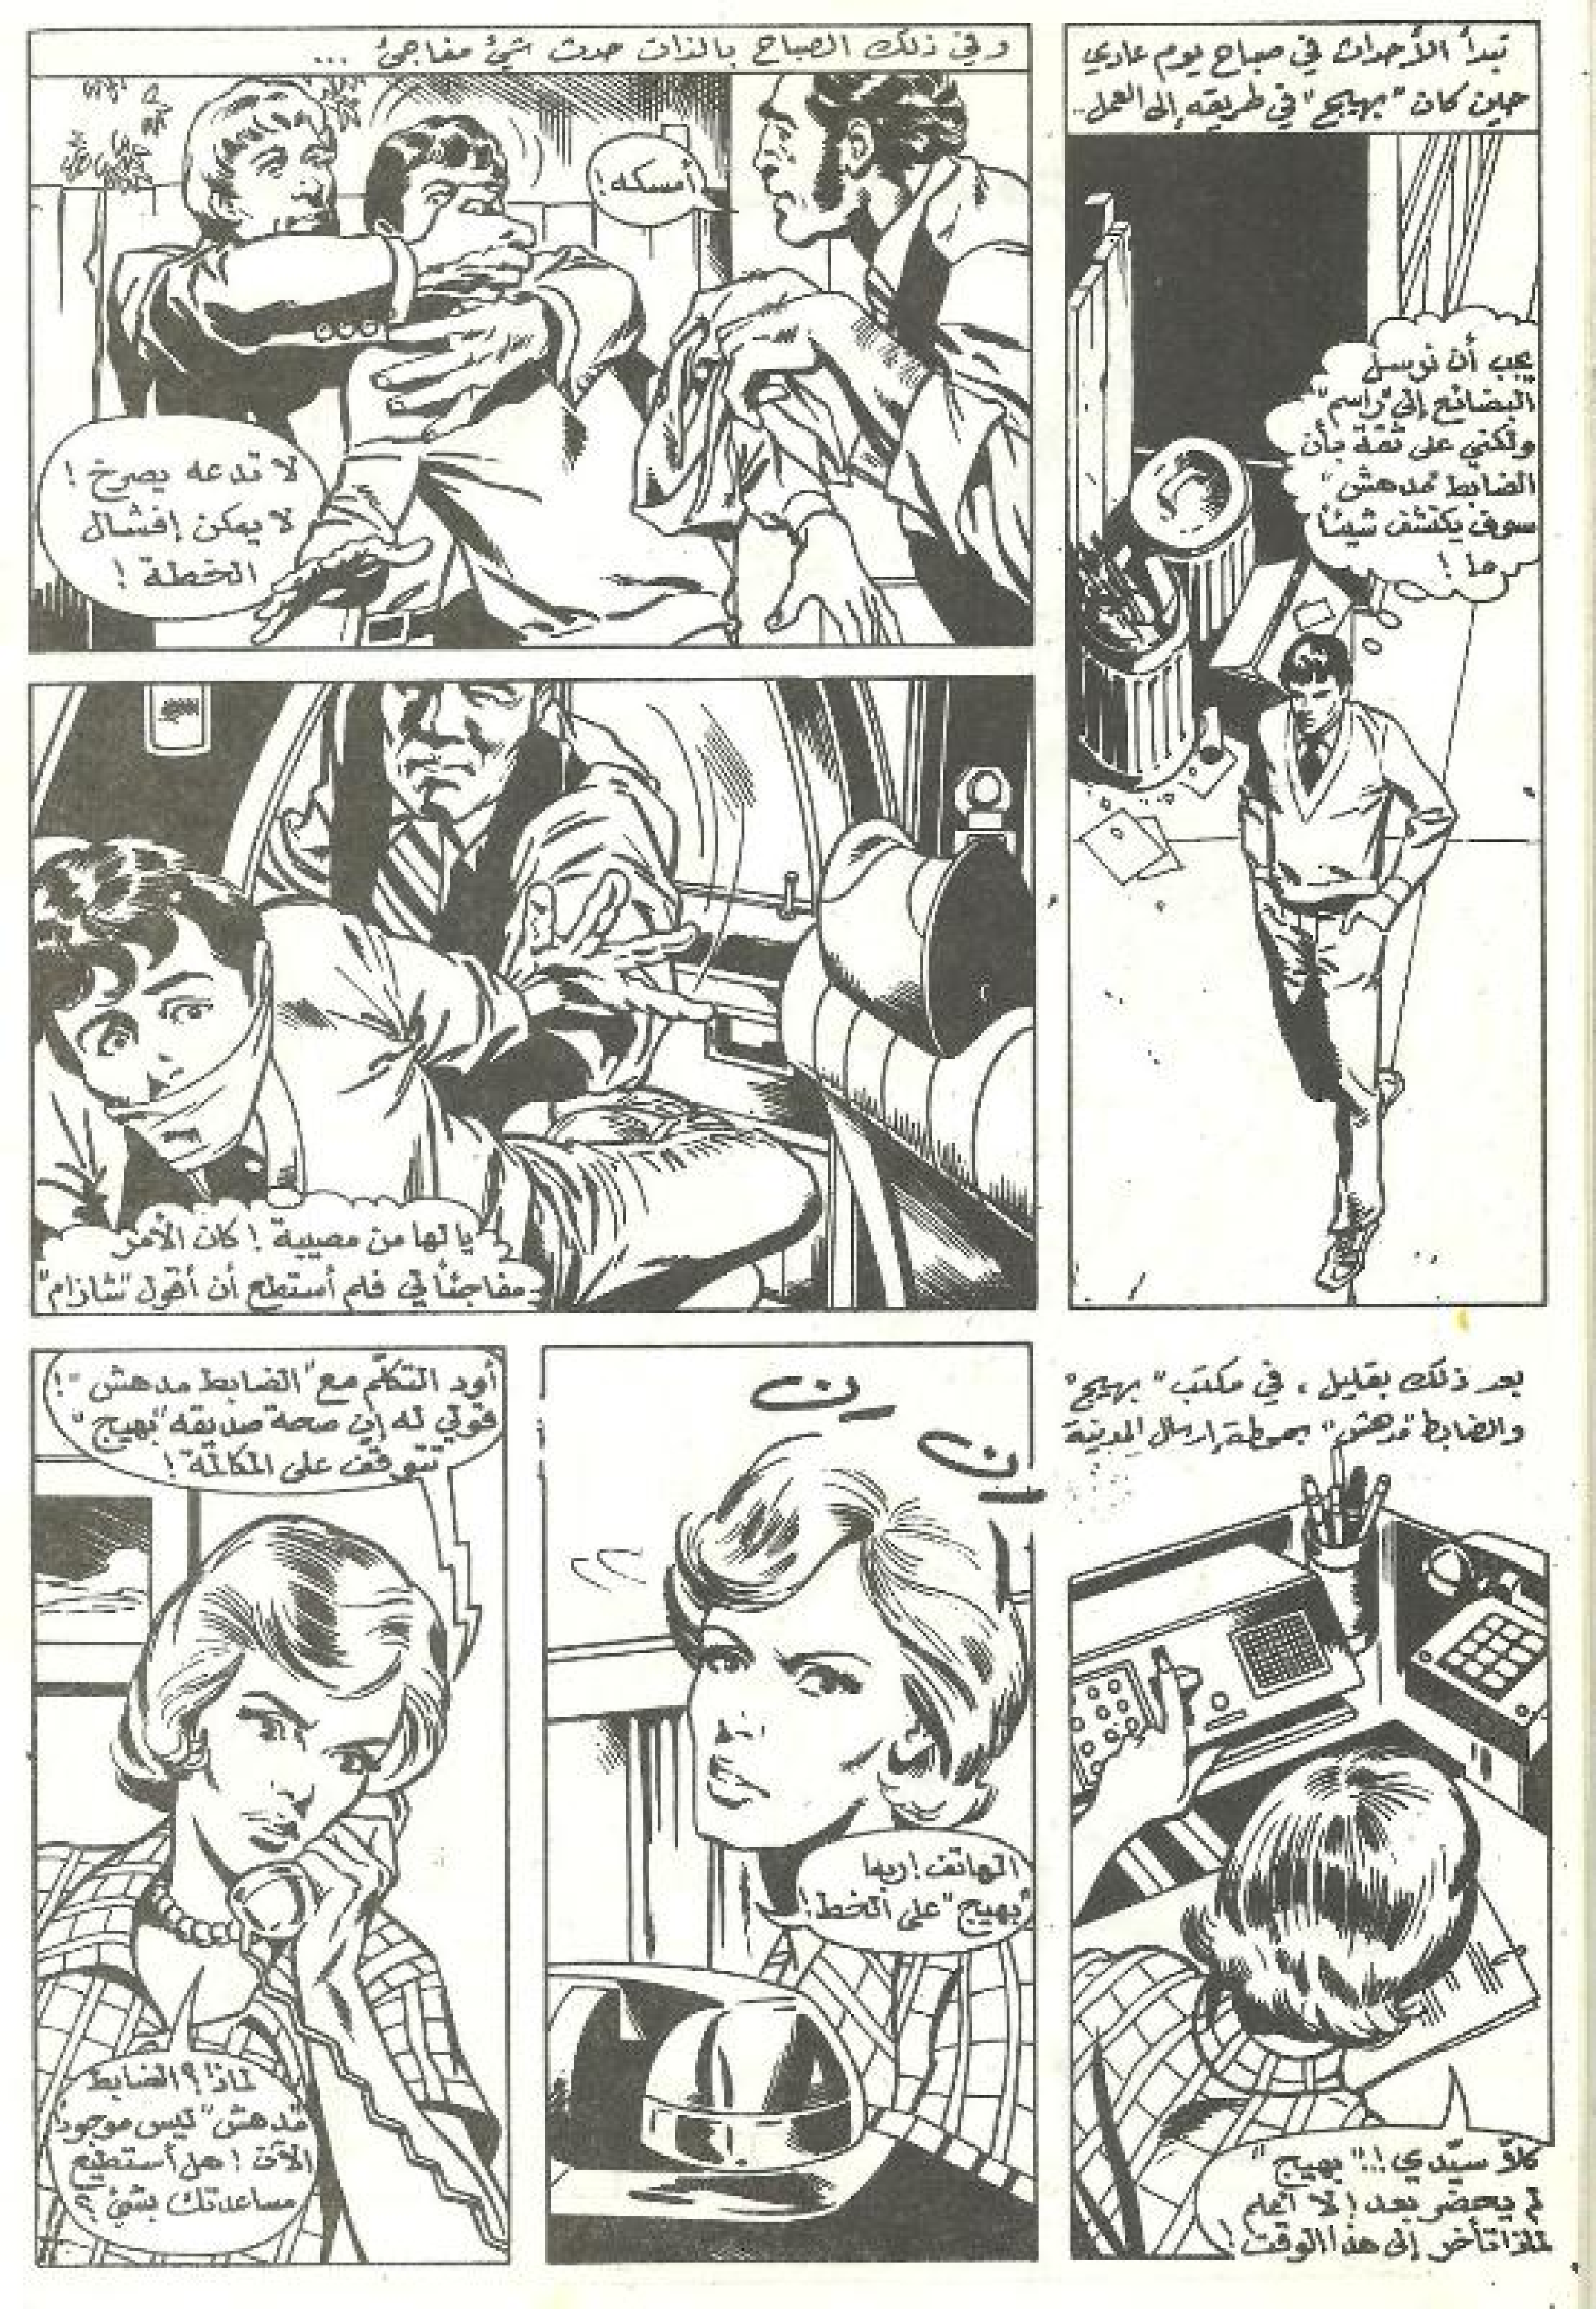 تبدأ الأحداث في صباح يوم عادي
حين كان "بهيج" في طريقه إلى العمل..
يجب أن نوسل
البضائع إلى "راسم"
ولكني على ثقة بأن
الضابط "مدهش"
سوف يكتشف شيئاً
ما!
وفي ذلك الصباح بالذات حدث شيئ مفاجئ ...
أمسكه!
لا تدعه يصرخ!
لا يمكن إفشال
الخطة!
يا لها من مصيبة! كان الأمر
مفاجئاً لي فلم أستطع أن أقول "شازام"
بعد ذلك بقليل، في مكتب "بهيج"
والضابط "مدهش" بمحطة إرسال المدينة
كلاّ سيّدي!.. "بهيج"
لم يحضر بعد! لا أعلم
لماذا تأخر إلى هذا الوقت!
رن
رن
الهاتف! ربما
"بهيج" على الخط!
أود التكلّم مع "الضابط مدهش"!
قولي له إن صحة صديقه "بهيج"
تتوقف على المكالمة!
لماذا؟ الضابط
"مدهش" ليس موجود
الآن! هل أستطيع
مساعدتك بشيئ؟